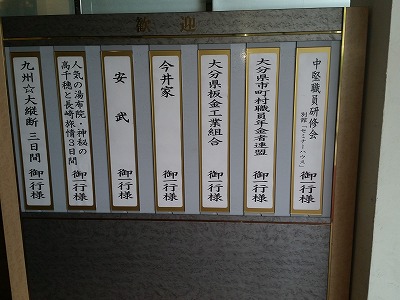 歓迎
中堅職員研修会
別館「セミナーハウス」
御一行様
大分県市町村職員年金者連盟
御一行様
大分県板金工業組合
御一行様
今井家
御一行様
安武
御一行様
人気の湯布院・神秘の
高千穂と長崎旅情3日間
御一行様
九州☆大縦断 三日間
御一行様